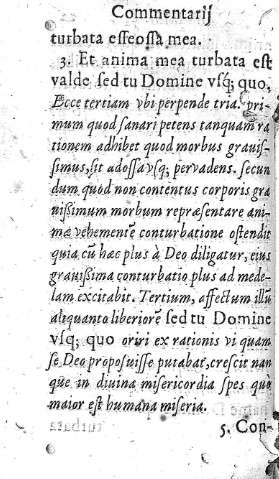 Commentarij
turbata esseossa mea.
3. Et anima mea turbata est
valde sed tu Domine vsq; quo.
Ecce tertiam vbi perpende tria. pri-
mum quod sanari petens tanquam ra
tionem adhibet quod morbus grauis-
simus, sit ad ossa vsq; peruadens. secun
dum quod non contentus corporis gra
uissimum morbum repræsentare ani-
mæ vehementē conturbatione ostendit
quia cū hæc plus à Deo diligatur, eius
grauissima conturbatio plus ad mede-
lam excitabit. Tertium, affectum illū
aliquanto liberiorē sed tu Domine
vsq; quo oriri ex rationis vi quam
se Deo proposuisse putabat, crescit nan
que in diuina misericordia spes quò
maior est humana miseria.
5. Con-